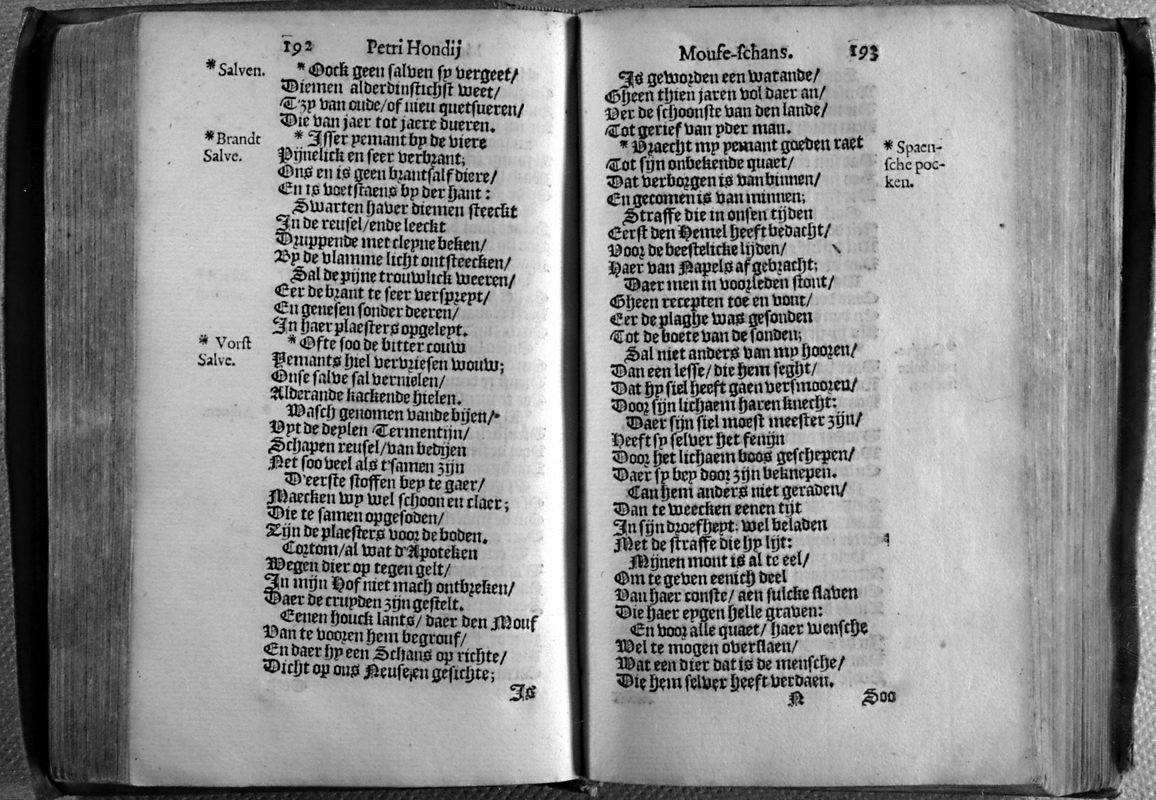 192 Petri Hondij
* Salven.
* Oock geen salven sy vergeet/
Diemen alderdinstichst weet/
T'zy van oude/of nieu quetsueren/
Die van jaer tot jaere dueren.
* Brandt
Salve.
* Isser yemant by de viere
Pijnelick en seer verbrant;
Ons en is geen brantsalf diere/
En is voetstaens by der hant:
Swarten haver diemen steeckt
In de reusel/ende leeckt
Druppende met cleyne beken/
By de vlamme licht ontsteecken/
Sal de pijne trouwlick weeren/
Eer de brant te seer verspreyt/
En genesen sonder deeren/
In haer plaesters opgeleyt.
* Vorst
Salve.
* Ofte soo de bitter couw
Yemants hiel vervriesen wouw;
Onse salve sal vernielen/
Alderande kackende hielen.
Wasch genomen vande bijen/
Uyt de deylen Termentijn/
Schapen reusel/van bedijen
Net soo veel als t'samen zijn
D'eerste stoffen bey te gaer/
Maecken wy wel schoon en claer;
Die te samen opgesoden/
Zijn de plaesters voor de boden.
Cortom/al wat d'Apoteken
Wegen dier op tegen gelt/
In mijn Hof niet mach ontbreken/
Daer de cruyden zijn gestelt.
Eenen houck lants/ daer den Mouf
Van te vooren hem begrouf/
En daer hy een Schans op richte/
Dicht op ons Neusen gesichte;
Is
Moufe-schans. 193
Is geworden een warande/
Gheen thien jaren vol daer an/
Ver de schoonste van den lande/
Tot gerief van yder man.
* Spaen-
sche poc-
ken.
* Vraecht my yemant goeden raet
Tot sijn onbekende quaet/
Dat verborgen is van binnen/
En gecomen is van minnen;
Straffe die in onsen tijden
Eerst den Hemel heeft bedacht/
Voor de beestelicke lijden/
Haer van Napels af gebracht;
Daer men in voorleden stont/
Gheen recepten toe en vont/
Eer de plaghe was gesonden
Tot de boete van de sonden;
Sal niet anders van my hooren/
Dan een lesse/ die hem seght/
Dat hy siel heeft gaen versmooren/
Door sijn lichaem haren knecht:
Daer sijn siel moest meester zijn/
Heeft sy selver het fenijn
Door het lichaem boos geschepen/
Daer sy bey door zijn beknepen.
Can hem anders niet geraden/
Dan te weecken eenen tijt
In sijn droefheyt: wel beladen
Met de straffe die hy lijt:
Mijnen mont is al te eel/
Om te geven eenich deel
Van haer conste/ aen sulcke slaven
Die haer eygen helle graven:
En voor alle quaet/ haer wensche
Wel te mogen overslaen/
Wat een dier dat is de mensche/
Die hem selver heeft verdaen.
N Soo